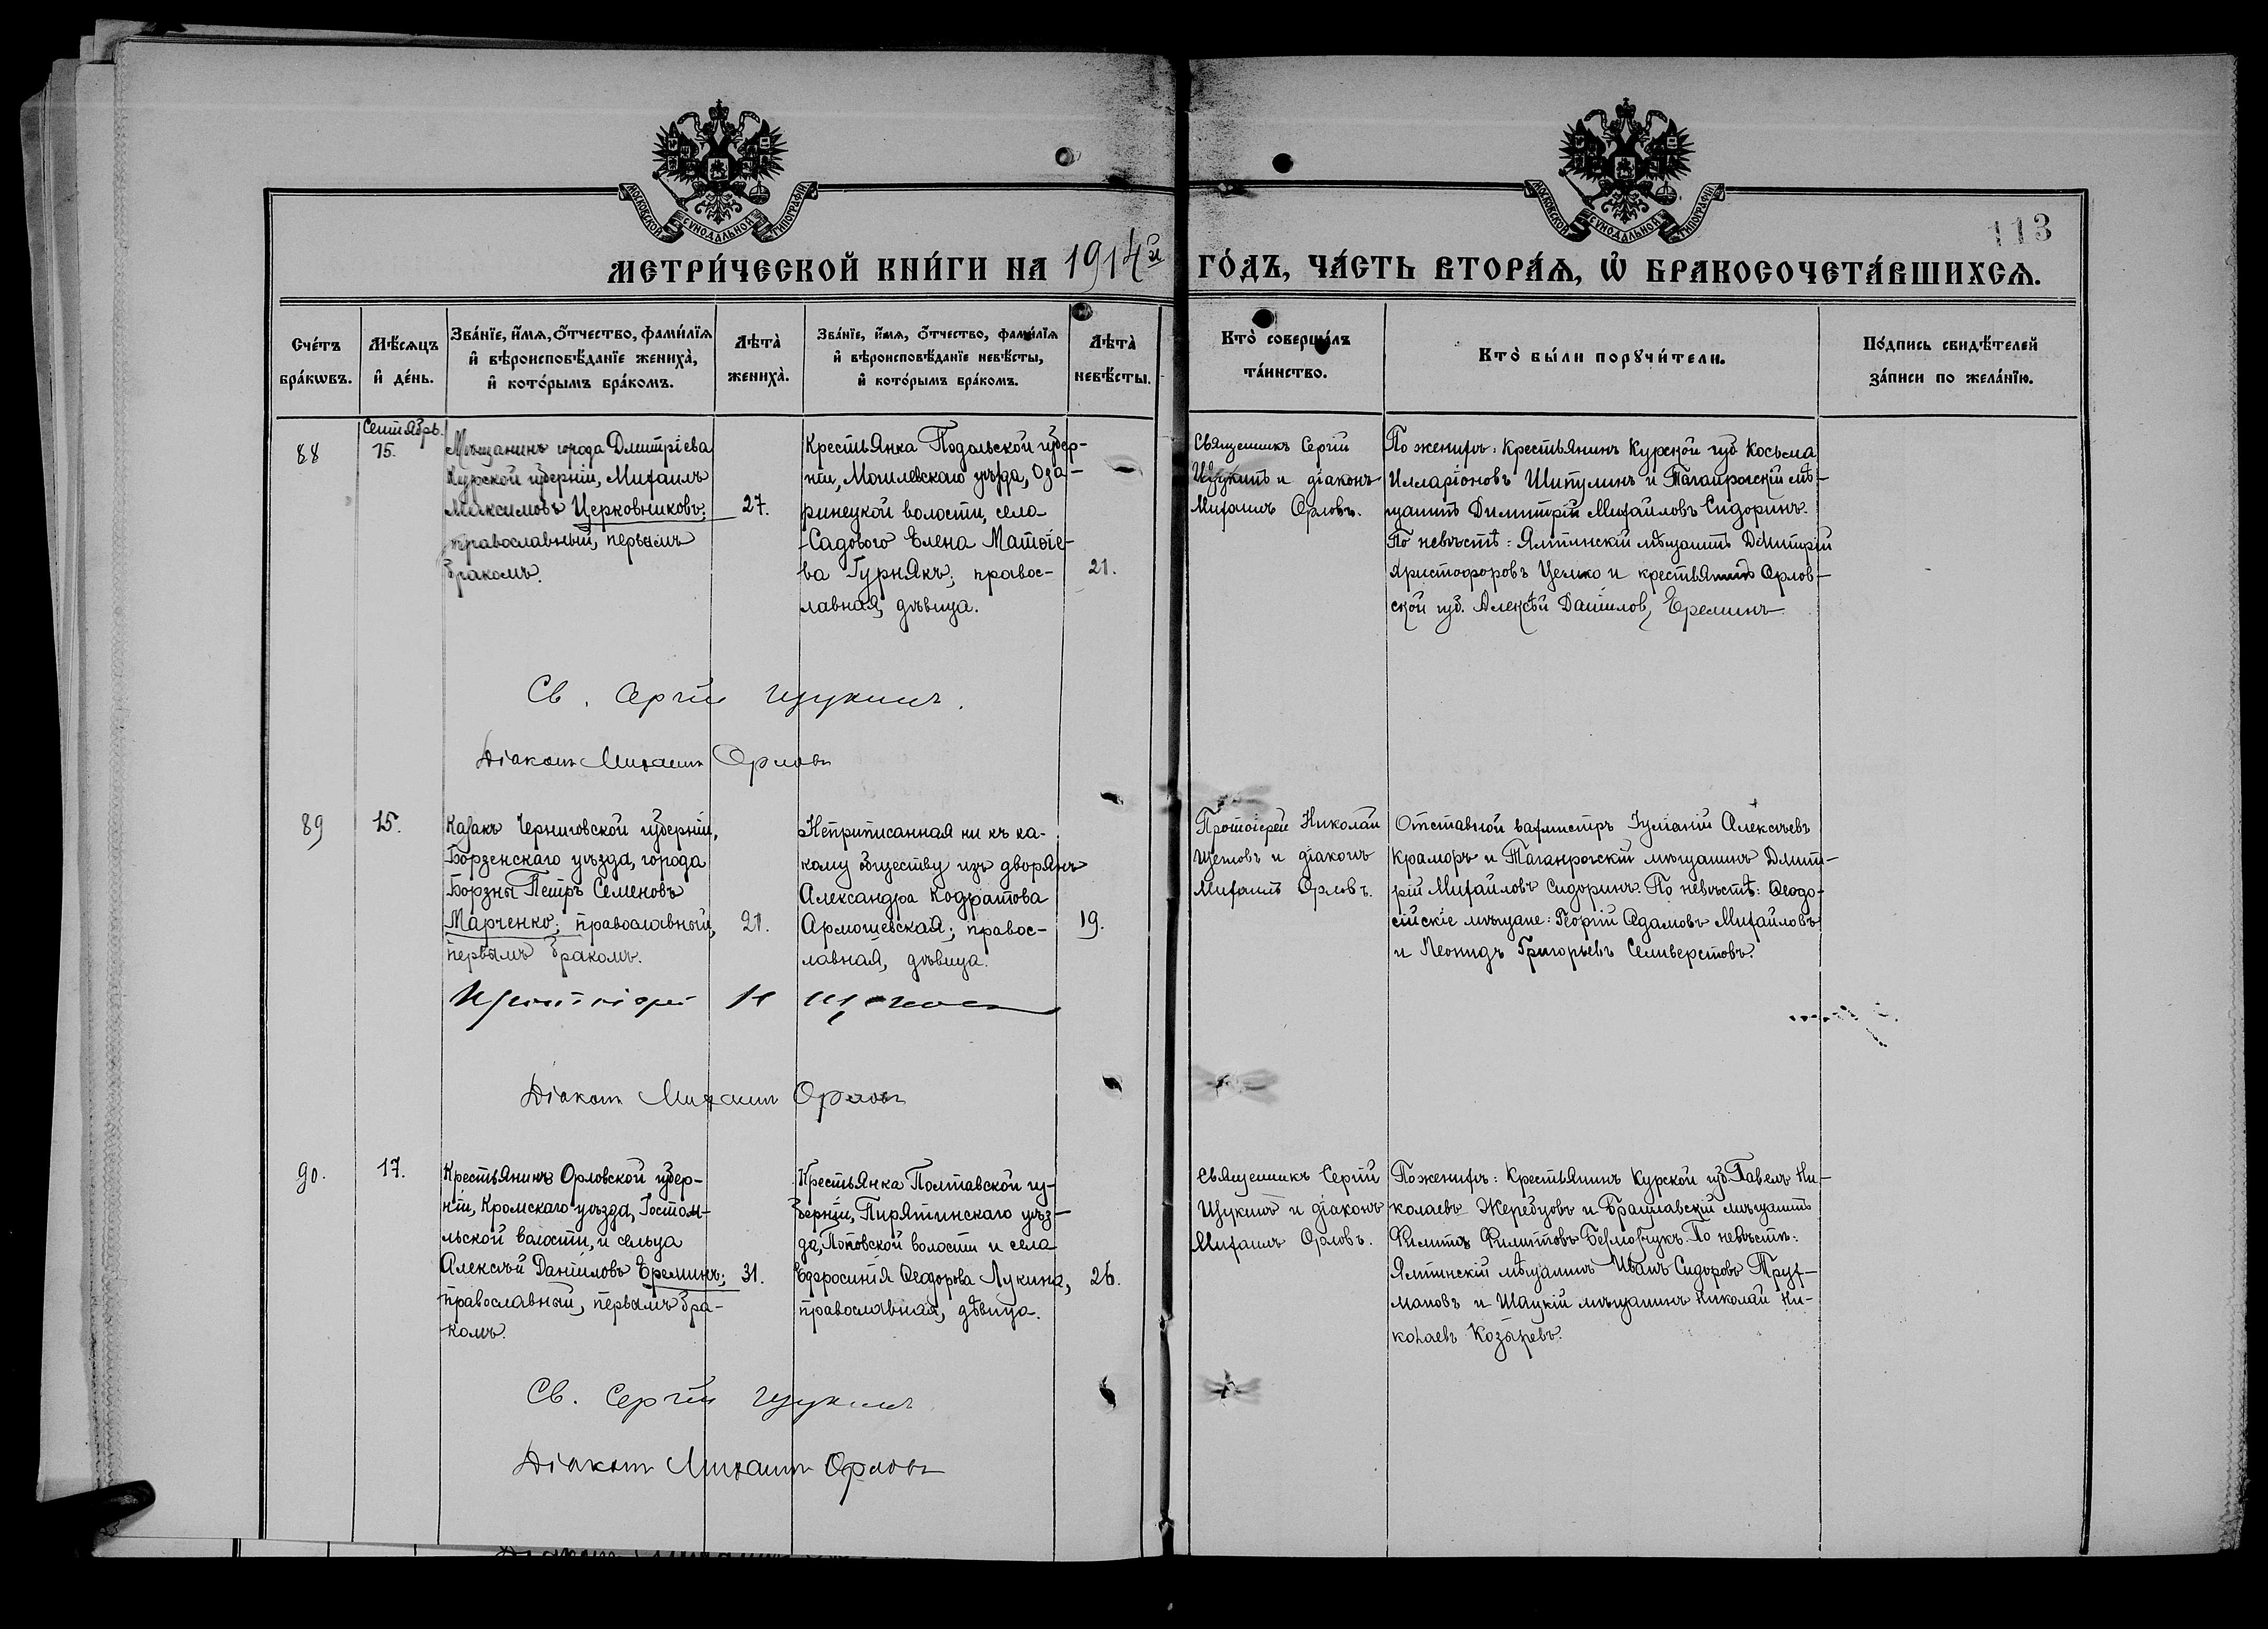 МОСКОВСКОЙ СѴНОДАЛЬНОЙ ТИПОГРАФІИ
МОСКОВСКОЙ СѴНОДАЛЬНОЙ ТИПОГРАФІИ
113
МЕТРИ́ЧЕСКОЙ КНИ́ГИ НА 1914й ГО́ДЪ, ЧА́СТЬ ВТОРА́Ѧ, Ѡ҆ БРАКОСОЧЕТА́ВШИХСѦ.
Сче́тъ
бра́кѡвъ.
Мѣ́сѧцъ
и҆ де́нь.
Зва́нїе, и҆́мѧ, ѻ҆́тчество, фами́лїѧ
и҆ вѣроисповѣ́данїе жениха̀,
и҆ кото́рымъ бра́комъ.
Лѣта̀
жениха̀.
Зва́нїе, и҆́мѧ, ѻ҆́тчество, фами́лїѧ
и҆ вѣроисповѣ́данїе невѣ́сты,
и҆ кото́рымъ бра́комъ.
Лѣта̀
невѣ́сты.
Кто̀ соверша́лъ
та́инство.
Кто̀ бы́ли порꙋчи́тели.
По́дпись свидѣ́телей
за́писи по жела́нїю.
88
Сентябрь.
15.
Мѣщанинъ города Дмитріева
Курской губерніи, Михаилъ
Максимовъ Церковниковъ;
православный, первымъ
бракомъ.
27.
Крестьянка Подольской губер-
ніи, Могилевскаго уѣзда, Оза-
ринецкой волости, села
Садового Елена Матѳіе-
ва Гурнякъ; правос-
лавная, дѣвица.
21.
Священникъ Сергій
Щукинъ и діаконъ
Михаилъ Орловъ.
По женихѣ: крестьянинъ Курской губ. Косьма
Илларіоновъ Шипулинъ и Таганрогскій мѣ-
щанинъ Димитрій Михайловъ Сидоринъ.
По невѣстѣ: Ялтинскій мѣщанинъ Дмитрій
Христофоровъ Целио и крестьянинъ Орлов-
ской губ. Алексѣй Даніилов, Ереминъ
Св. Сергій Щукинъ.
Діаконъ Михаилъ Орловъ
89
15.
Казакъ Черниговской губерніи,
Борзенскаго уѣзда, города
Борзны Петръ Семеновъ
Марченко; православный,
первымъ бракомъ.
21.
Неприписанная ни къ ка-
кому обществу изъ дворянъ
Александра Кодратова
Армошевская; правос-
лавная, дѣвица.
19.
Протоіерей Николай
Щегловъ и діаконъ
Михаилъ Орловъ.
Отставной вахмистръ Іуліаній Алексѣевъ
Краморъ и Таганрогскій мѣщанинъ Дмит-
рій Михайловъ Сидоринъ. По невѣстѣ: Ѳеодо-
сійскіе мѣщане: Георгій Адамовъ Михайловъ
и Леонидъ Григорьевъ Селиверстовъ.
Протоіерей Н Щегловъ
Діаконъ Михаилъ Орловъ
90.
17.
Крестьянинъ Орловской губер-
ніи, Кромскаго уѣзда, Гостом-
льской волости, и сельца
Алексѣй Даніиловъ Ереминъ;
православный, первымъ бра-
комъ.
31.
Крестьянка Полтавской гу-
берніи, Пирятинскаго уѣз-
да, Поповской волости и села
Евфросинія Ѳеодорова Лукина,
православная, дѣвица.
26.
Священникъ Сергій
Щукинъ и діаконъ
Михаилъ Орловъ.
По женихѣ: Крестьянинъ Курской губ. Павелъ Ни-
колаевъ Жеребцовъ и Брацлавскій мѣщанинъ
Филиппъ Филипповъ По невѣстѣ:
Ялтинскій мѣщанинъ Иванъ Сидоровъ Трух-
мановъ и Шацкій мѣщанинъ Николай Ни-
колаевъ Козыревъ.
Св. Сергій Щукинъ
Діаконъ Михаилъ Орловъ